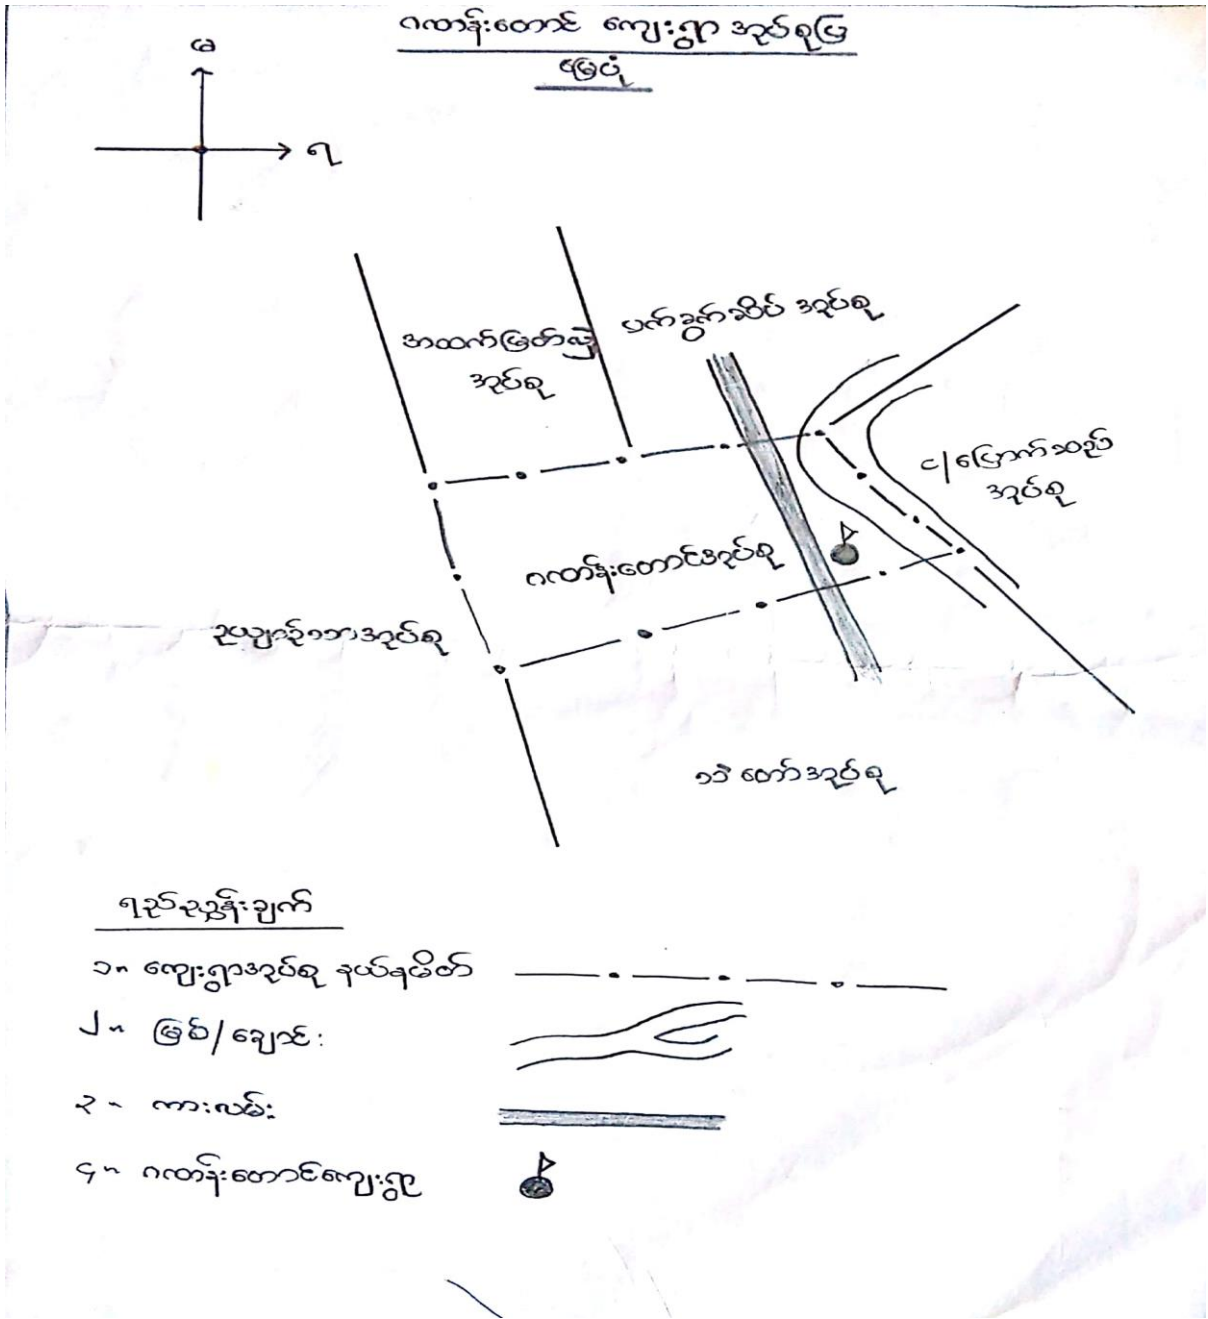 ဂဏန်းတောင် ကျေးရွာ အုပ်စုပြ
မြေပုံ
မ
ရ
အထက်မြတ်လှဲ
အုပ်စု
ပက်ခွက်ဆိပ် အုပ်စု
င/မြောက်
အုပ်စု
ဂဏန်းတောင်အုပ်စု
အုပ်စု
တော်အုပ်စု
ရည်ညွှန်းချက်
၁။ ကျေးရွာအုပ်စု နယ်နမိတ်
၂။ မြစ်/ချောင်း
၃။ ကားလမ်း
၄။ ဂဏန်းတောင်ကျေးရွာ